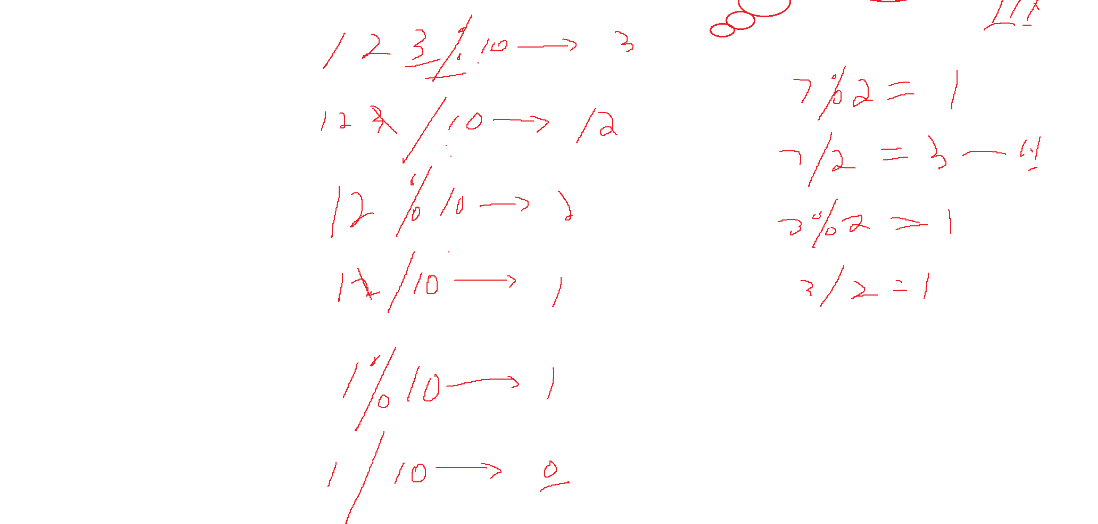 123 % 10 → 3
123 / 10 → 12
12 % 10 → 2
12 / 10 → 1
1 % 10 → 1
1 / 10 → 0
111
7 % 2 = 1
7 / 2 = 3 — 11
3 % 2 = 1
3 / 2 = 1